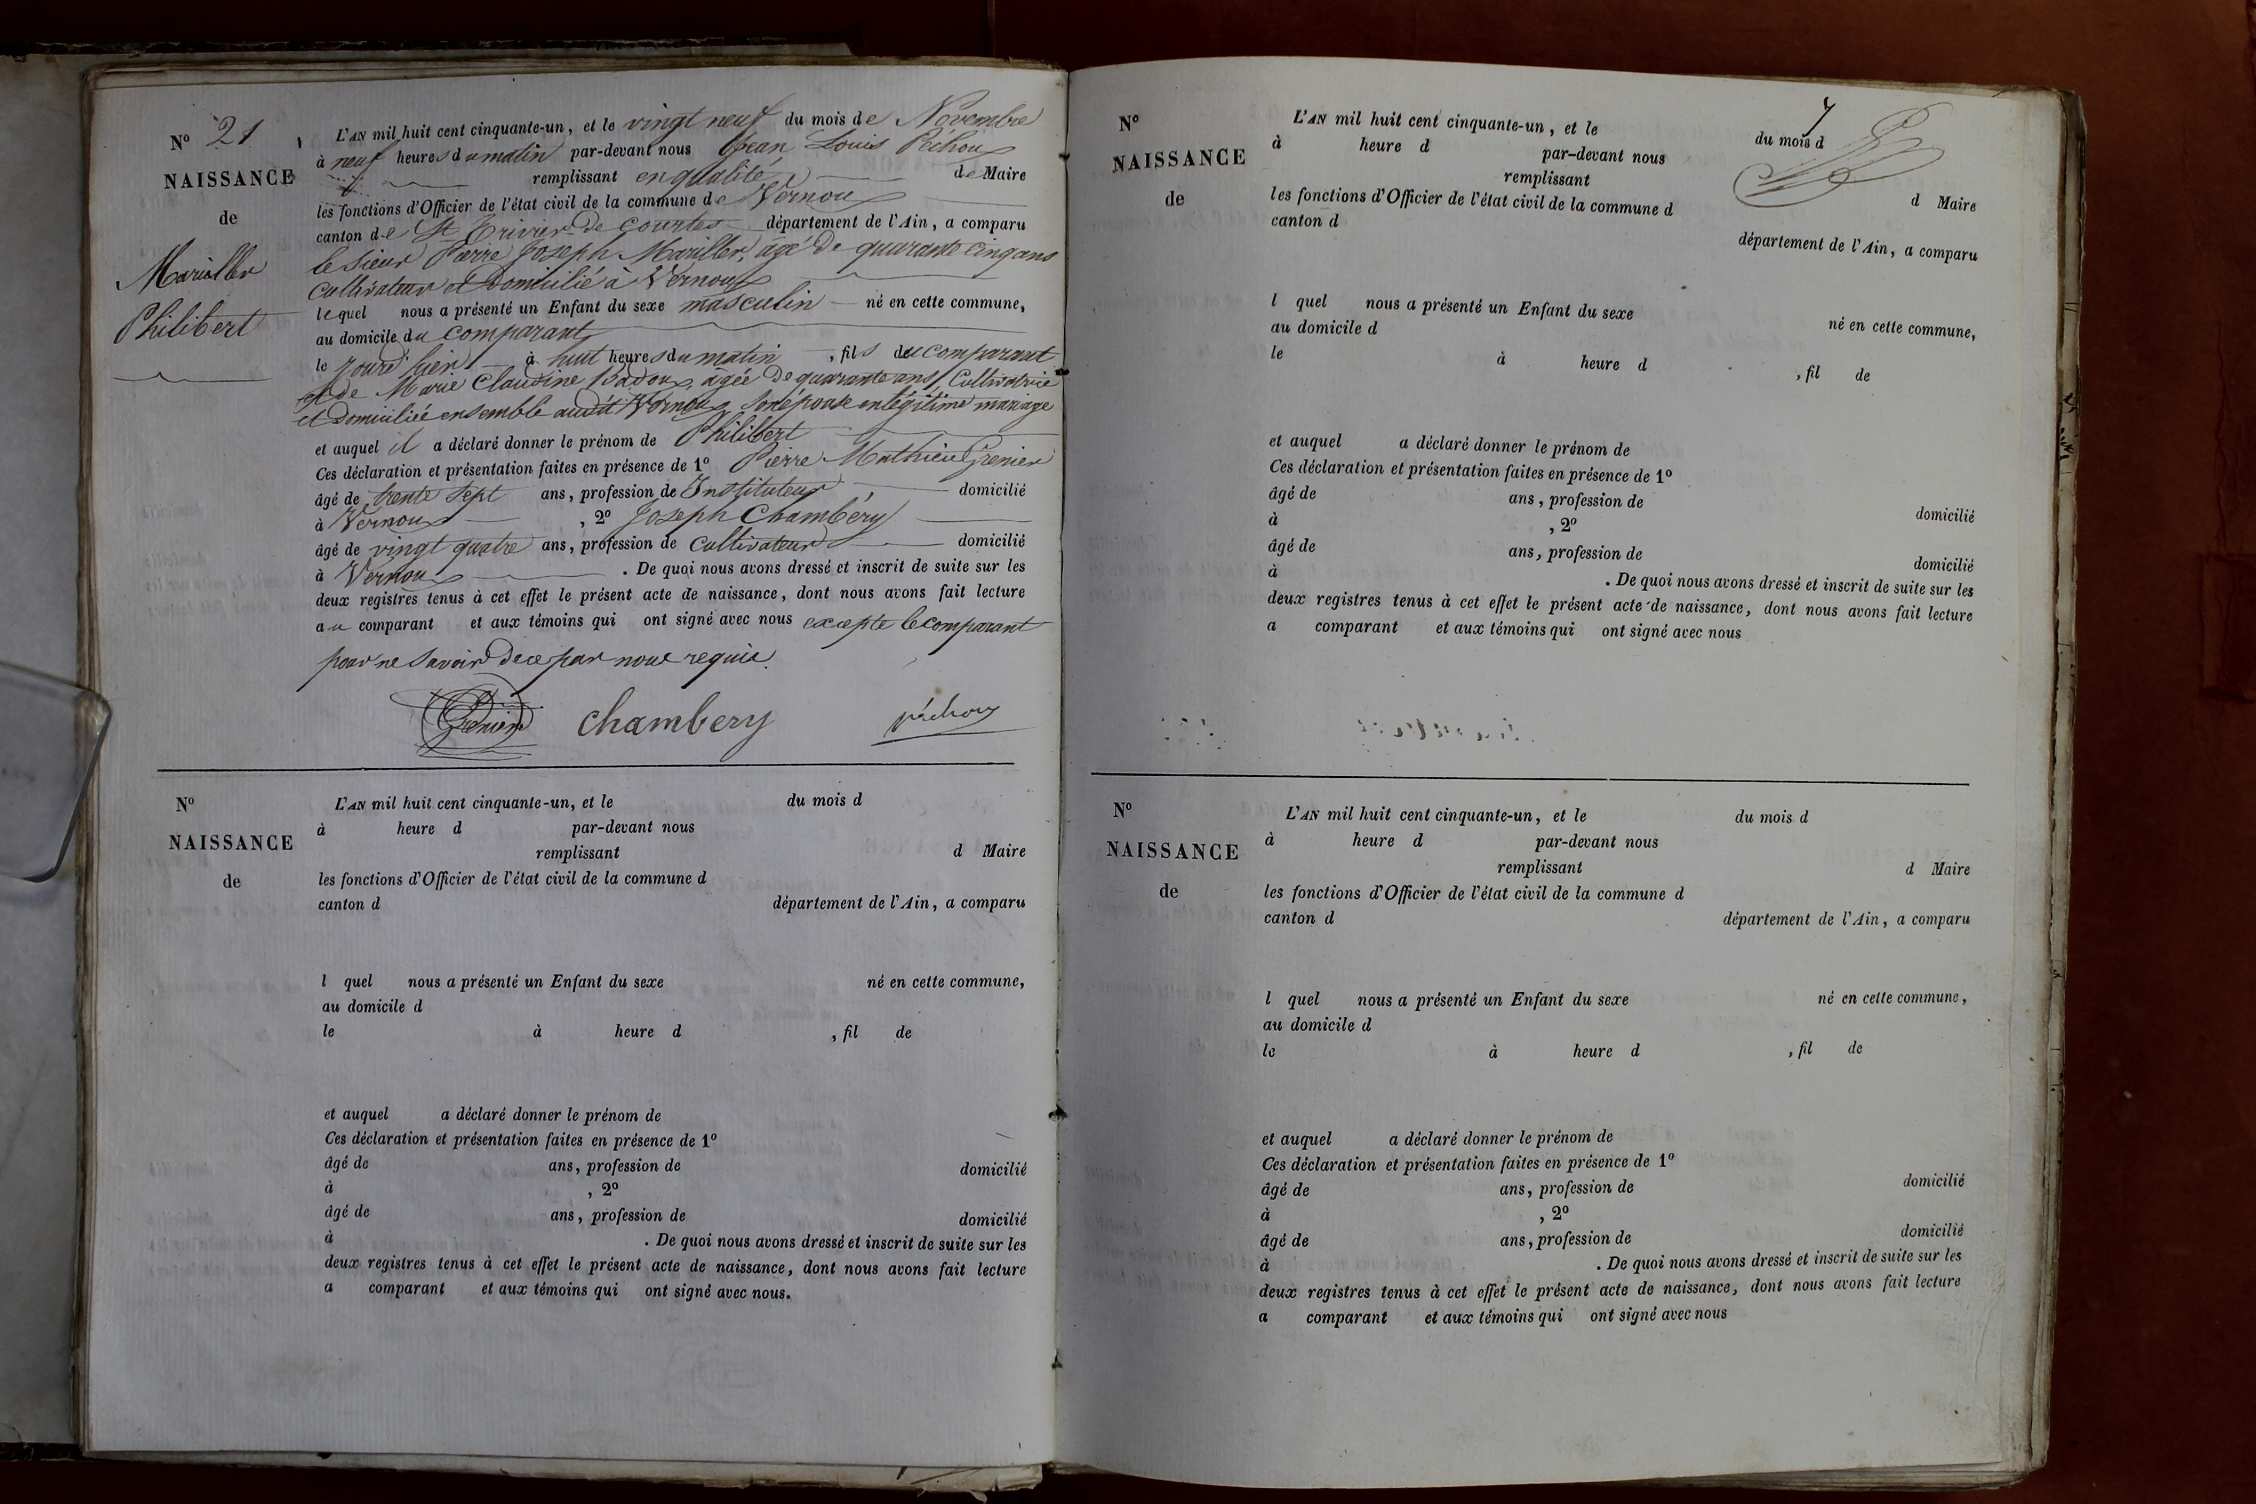 N° 21
NAISSANCE
de
Marillier
Philibert
L'AN mil huit cent cinquante-un, et le vingt neuf du mois de Novembre
à neuf heures du matin par-devant nous Jean Louis Péchoux
remplissant en qualité de Maire
les fonctions d'Officier de l'état civil de la commune de Vernoux
canton de St Trivier de Courtes département de l'Ain, a comparu
le sieur Pierre Joseph Marillier, agé de quarante cinq ans
cultivateur et domicilié à Vernoux
lequel nous a présenté un Enfant du sexe masculin né en cette commune,
au domicile du comparant
le jour d'hier à huit heures du matin, fils du comparant
et de Marie Claudine Badoux, âgée de quarante ans, Cultivatrice
et domiciliée ensemble audit Vernoux, son épouse en légitime mariage
et auquel il a déclaré donner le prénom de Philibert
Ces déclaration et présentation faites en présence de 1° Pierre Mathieu Grenier
âgé de trente sept ans, profession de Instituteur, domicilié
à Vernoux, 2° Joseph Chambéry
âgé de vingt quatre ans, profession de cultivateur domicilié
à Vernoux. De quoi nous avons dressé et inscrit de suite sur les
deux registres tenus à cet effet le présent acte de naissance, dont nous avons fait lecture
au comparant et aux témoins qui ont signé avec nous excepté le comparant
pour ne savoir de ce par nous requis.
Grenier chambery péchoux
N°
NAISSANCE
de
L'AN mil huit cent cinquante-un, et le du mois d
à heure d par-devant nous
remplissant d Maire
les fonctions d'Officier de l'état civil de la commune d
canton d département de l'Ain, a comparu
l quel nous a présenté un Enfant du sexe né en cette commune,
au domicile d
le à heure d , fil de
et auquel a déclaré donner le prénom de
Ces déclaration et présentation faites en présence de 1°
âgé de ans, profession de domicilié
à , 2°
âgé de ans, profession de domicilié
à . De quoi nous avons dressé et inscrit de suite sur les
deux registres tenus à cet effet le présent acte de naissance, dont nous avons fait lecture
a comparant et aux témoins qui ont signé avec nous.
7
N°
NAISSANCE
de
L'AN mil huit cent cinquante-un, et le du mois d
à heure d par-devant nous
remplissant d Maire
les fonctions d'Officier de l'état civil de la commune d
canton d département de l'Ain, a comparu
l quel nous a présenté un Enfant du sexe né en cette commune,
au domicile d
le à heure d , fil de
et auquel a déclaré donner le prénom de
Ces déclaration et présentation faites en présence de 1°
âgé de ans, profession de domicilié
à , 2°
âgé de ans, profession de domicilié
à . De quoi nous avons dressé et inscrit de suite sur les
deux registres tenus à cet effet le présent acte de naissance, dont nous avons fait lecture
a comparant et aux témoins qui ont signé avec nous
N°
NAISSANCE
de
L'AN mil huit cent cinquante-un, et le du mois d
à heure d par-devant nous
remplissant d Maire
les fonctions d'Officier de l'état civil de la commune d
canton d département de l'Ain, a comparu
l quel nous a présenté un Enfant du sexe né en cette commune,
au domicile d
le à heure d , fil de
et auquel a déclaré donner le prénom de
Ces déclaration et présentation faites en présence de 1°
âgé de ans, profession de domicilié
à , 2°
âgé de ans, profession de domicilié
à . De quoi nous avons dressé et inscrit de suite sur les
deux registres tenus à cet effet le présent acte de naissance, dont nous avons fait lecture
a comparant et aux témoins qui ont signé avec nous